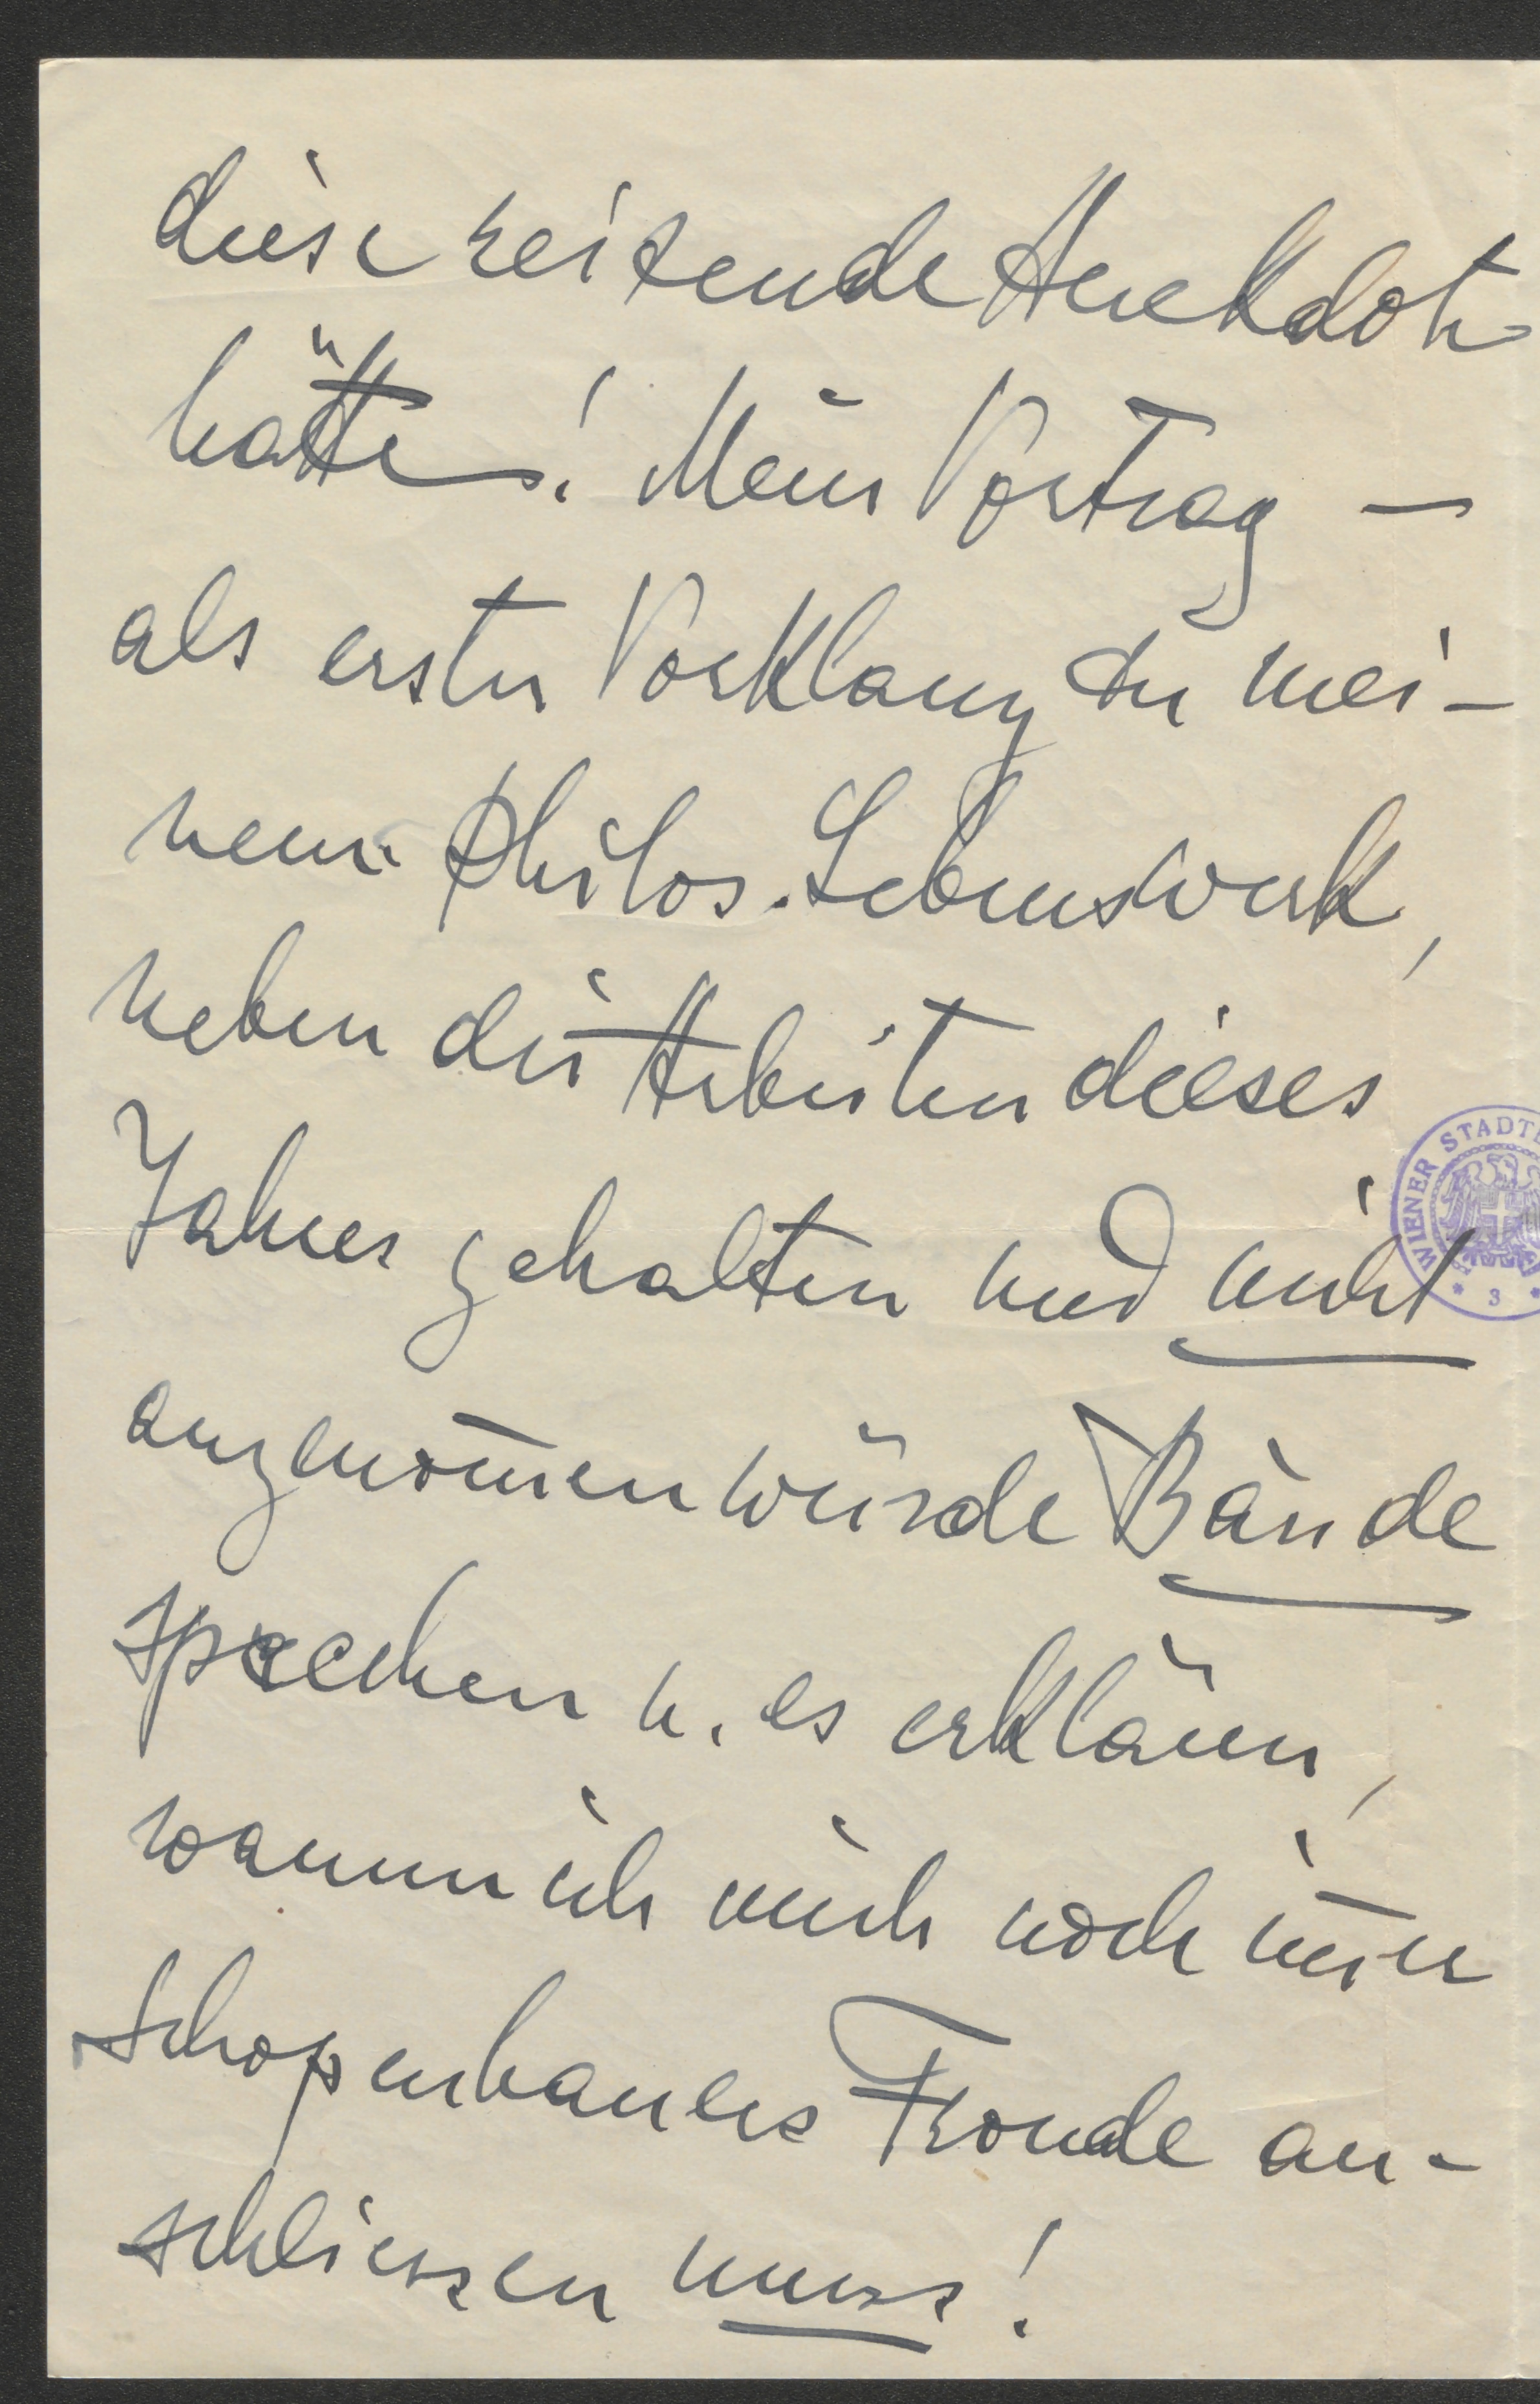 diese reizende Anekdote
hätte! Mein Vortrag –
als erster Vorklang zu mei-
nem philos. Lebenswerk,
neben die Arbeiten dieses
Jahres gehalten und nicht
angenom̅en würde Bände
sprechen u. es erklären,
warum ich mich noch im̅er
Schopenhauers Fronde an-
schliessen muss!
WIENER STADT
* 3 *